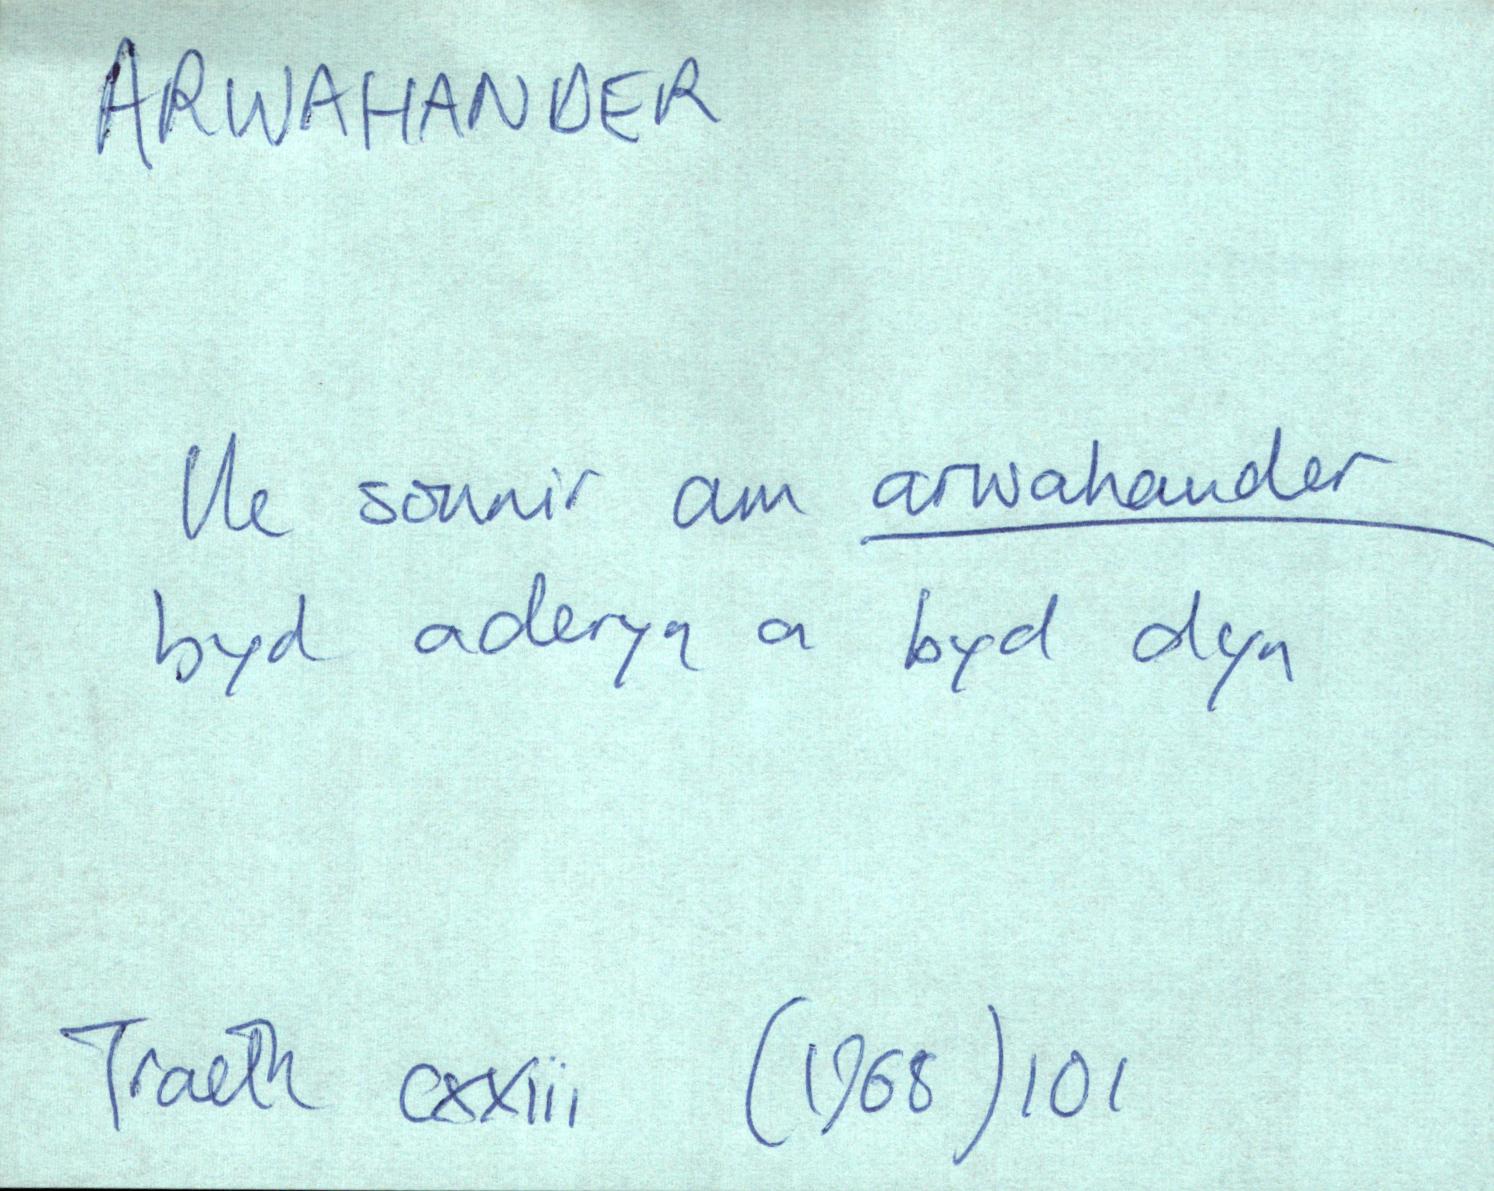 ARWAHANDER
lle sonnir am arwahander
byd aderyn a byd dyn
Traeth cxxiii (1968) 101